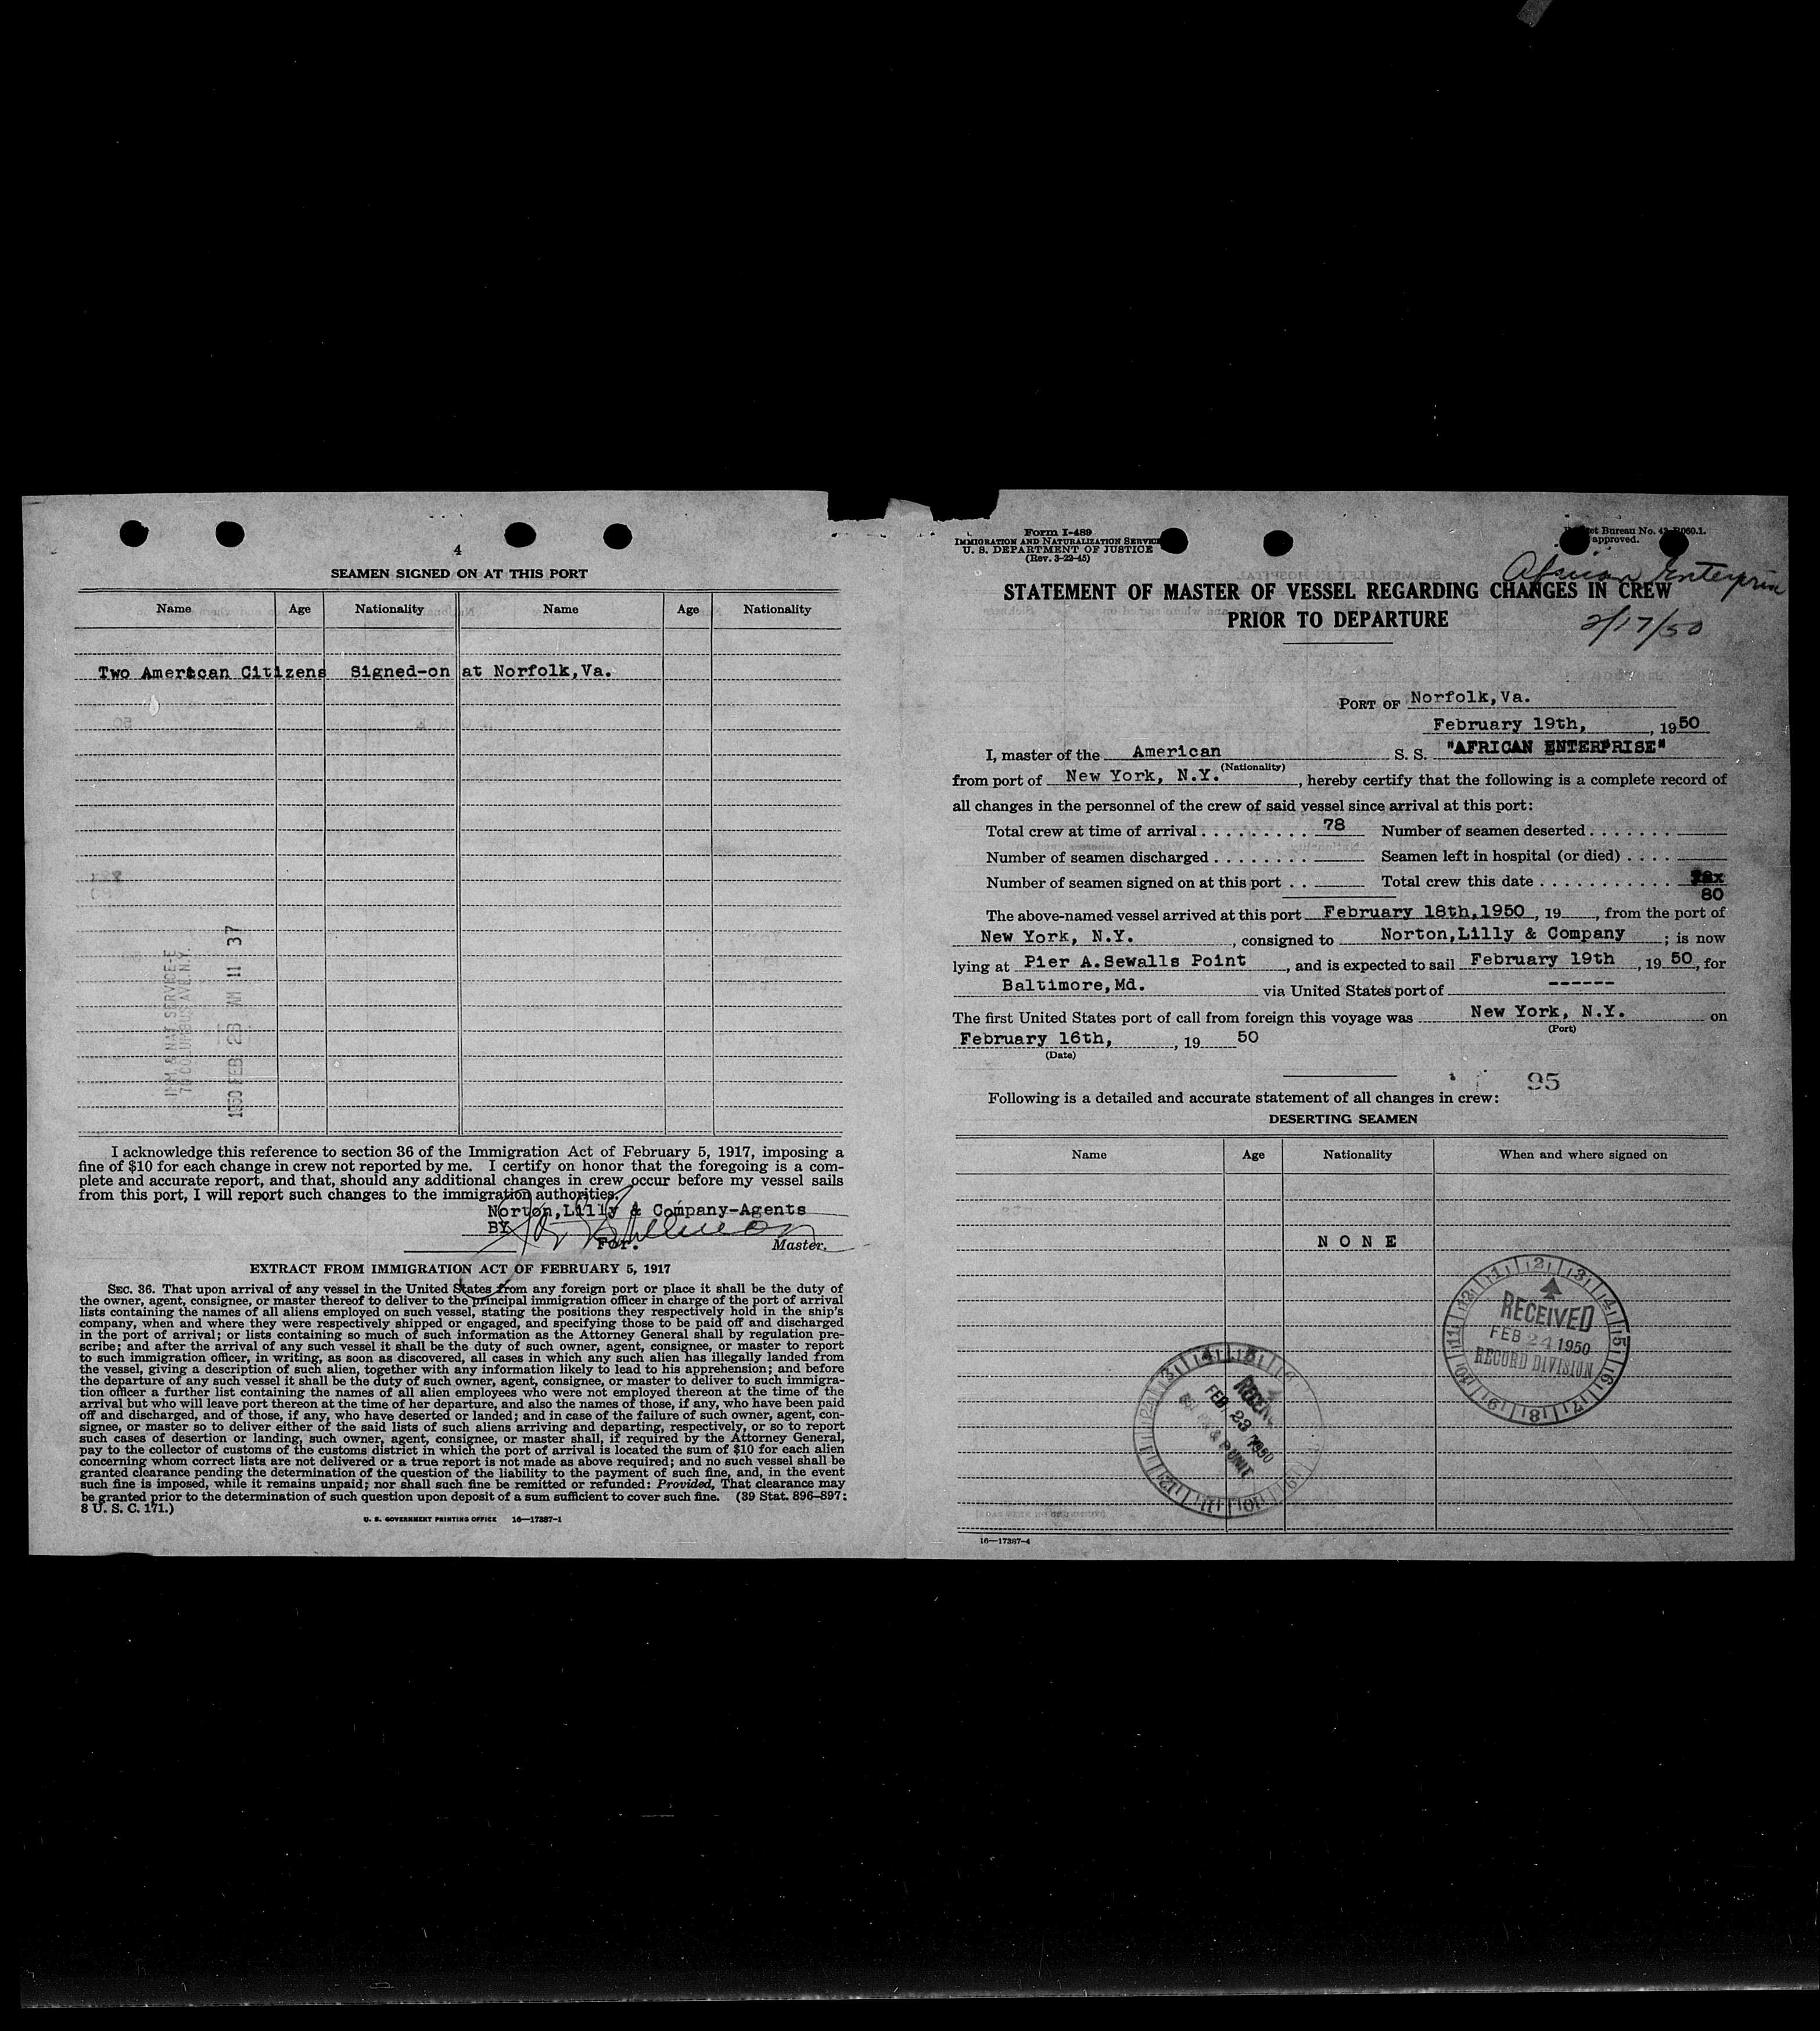 4
SEAMEN SIGNED ON AT THIS PORT
Name Age Nationality Name Age Nationality
Two American Citizens Signed-on at Norfolk,Va.
IMM & NAT SERVICE-E
70 COLUMBUS AVE N.Y.
1950 FEB 23 AM 11 37
I acknowledge this reference to section 36 of the Immigration Act of February 5, 1917, imposing a
fine of $10 for each change in crew not reported by me. I certify on honor that the foregoing is a com-
plete and accurate report, and that, should any additional changes in crew occur before my vessel sails
from this port, I will report such changes to the immigration authorities.
Norton,Lilly & Company-Agents
BY
For. Master.
EXTRACT FROM IMMIGRATION ACT OF FEBRUARY 5, 1917
SEC. 36. That upon arrival of any vessel in the United States from any foreign port or place it shall be the duty of
the owner, agent, consignee, or master thereof to deliver to the principal immigration officer in charge of the port of arrival
lists containing the names of all aliens employed on such vessel, stating the positions they respectively hold in the ship's
company, when and where they were respectively shipped or engaged, and specifying those to be paid off and discharged
in the port of arrival; or lists containing so much of such information as the Attorney General shall by regulation pre-
scribe; and after the arrival of any such vessel it shall be the duty of such owner, agent, consignee, or master to report
to such immigration officer, in writing, as soon as discovered, all cases in which any such alien has illegally landed from
the vessel, giving a description of such alien, together with any information likely to lead to his apprehension; and before
the departure of any such vessel it shall be the duty of such owner, agent, consignee, or master to deliver to such immigra-
tion officer a further list containing the names of all alien employees who were not employed thereon at the time of the
arrival but who will leave port thereon at the time of her departure, and also the names of those, if any, who have been paid
off and discharged, and of those, if any, who have deserted or landed; and in case of the failure of such owner, agent, con-
signee, or master so to deliver either of the said lists of such aliens arriving and departing, respectively, or so to report
such cases of desertion or landing, such owner, agent, consignee, or master shall, if required by the Attorney General,
pay to the collector of customs of the customs district in which the port of arrival is located the sum of $10 for each alien
concerning whom correct lists are not delivered or a true report is not made as above required; and no such vessel shall be
granted clearance pending the determination of the question of the liability to the payment of such fine, and, in the event
such fine is imposed, while it remains unpaid; nor shall such fine be remitted or refunded: Provided, That clearance may
be granted prior to the determination of such question upon deposit of a sum sufficient to cover such fine. (39 Stat. 896-897;
8 U. S. C. 171.)
U. S. GOVERNMENT PRINTING OFFICE 16—17387-1
Form I-489
IMMIGRATION AND NATURALIZATION SERVICE
U. S. DEPARTMENT OF JUSTICE
(Rev. 3-22-45)
Bureau No.
approved.
African Enterprise
STATEMENT OF MASTER OF VESSEL REGARDING CHANGES IN CREW
PRIOR TO DEPARTURE
2/17/50
PORT OF Norfolk,Va.
February 19th, , 1950
I, master of the American S. S. "AFRICAN ENTERPRISE"
(Nationality)
from port of New York, N.Y. , hereby certify that the following is a complete record of
all changes in the personnel of the crew of said vessel since arrival at this port:
Total crew at time of arrival . . . . . . . . . 78 Number of seamen deserted . . . . . . .
Number of seamen discharged . . . . . . . . Seamen left in hospital (or died) . . . .
Number of seamen signed on at this port . . Total crew this date . . . . . . . . . . .
80
The above-named vessel arrived at this port February 18th,1950 , 19 , from the port of
New York, N.Y. , consigned to Norton,Lilly & Company ; is now
lying at Pier A.Sewalls Point , and is expected to sail February 19th , 19 50, for
Baltimore,Md. via United States port of ------
The first United States port of call from foreign this voyage was New York, N.Y. on
(Port)
February 16th, , 19 50
(Date)
95
Following is a detailed and accurate statement of all changes in crew:
DESERTING SEAMEN
Name Age Nationality When and where signed on
N O N E
RECEIVED
FEB 24 1950
RECORD DIVISION
FEB 23 1950
16—17387-4